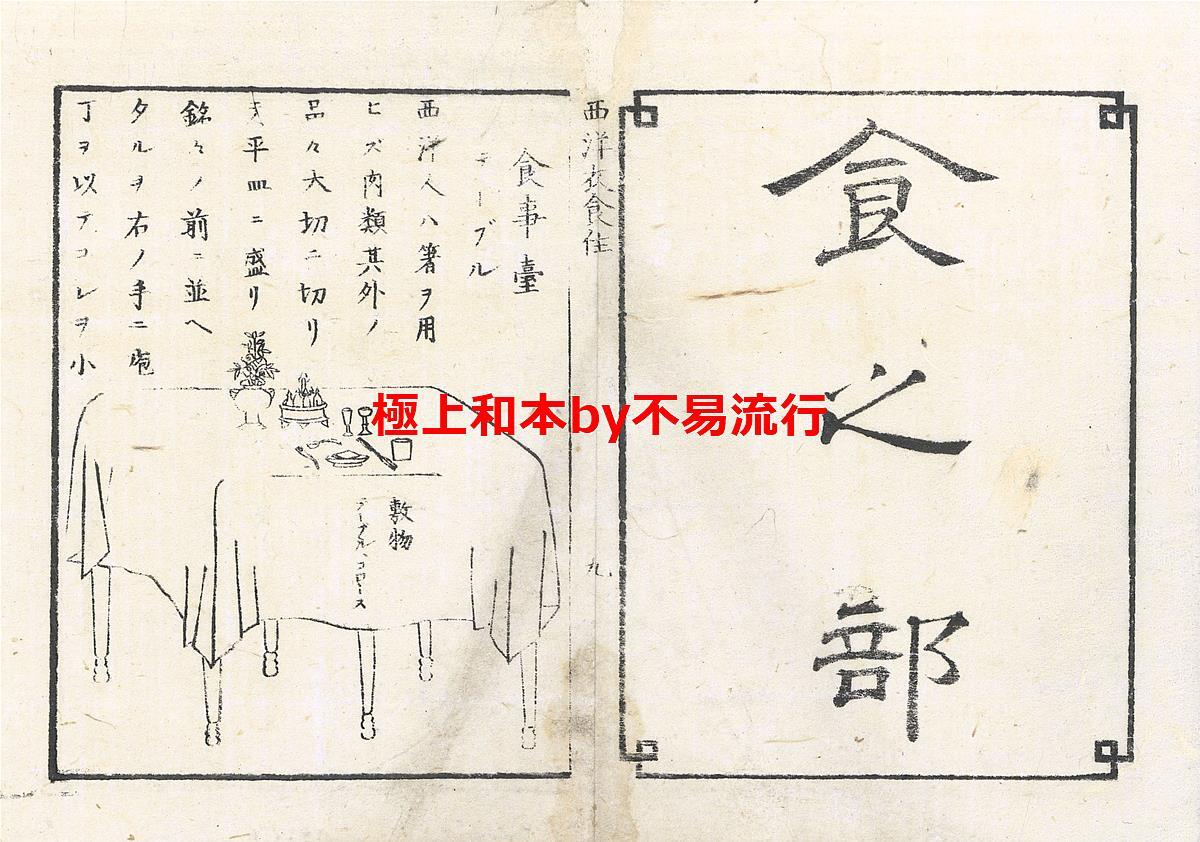 食之部
西洋衣食住
九
食事臺
テーブル
西洋人ハ箸ヲ用
ヒズ肉類其外ノ
品々大切ニ切リ
平皿ニ盛リ
銘々ノ前ニ並ヘ
タルヲ右ノ手ニ庖
丁ヲ以テコレヲ小
敷物
テーブル、コロース
極上和本by不易流行